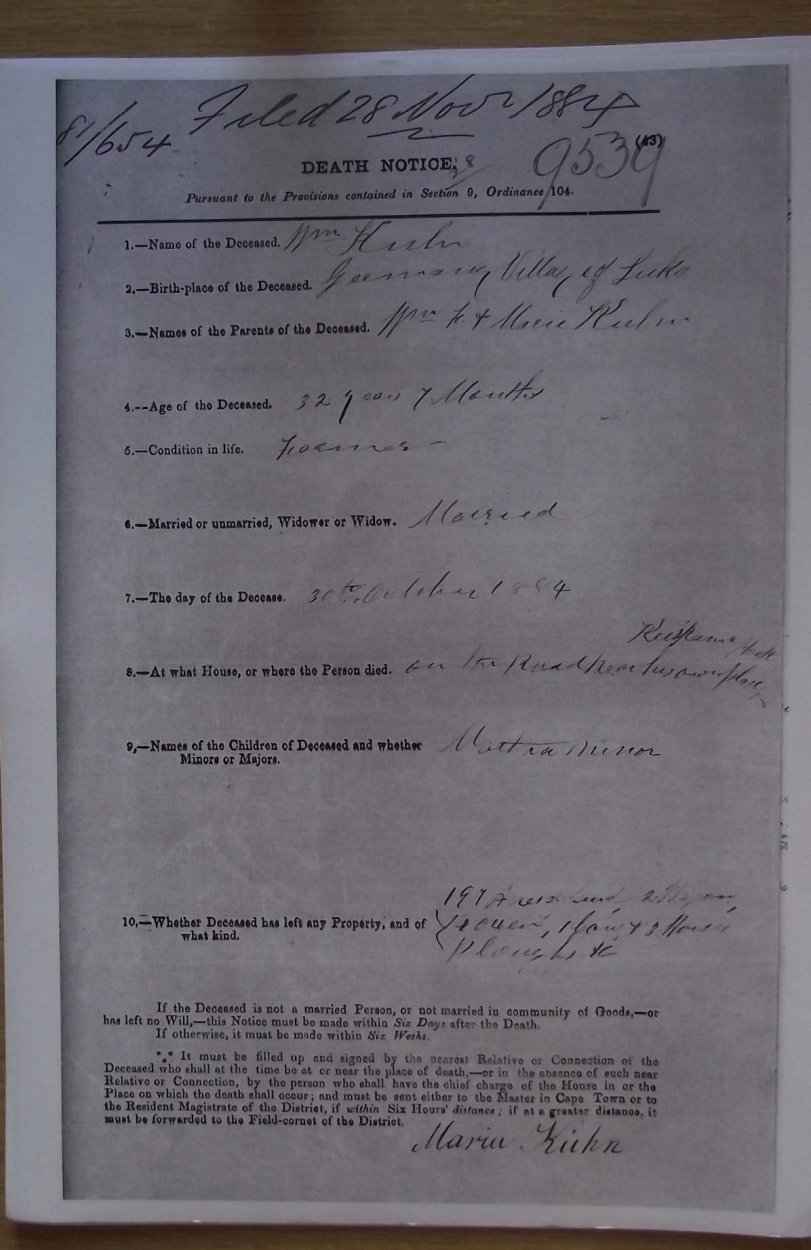 81/654 Filed 28 Nov 1884
(43)
DEATH NOTICE, 9539
Pursuant to the Provisions contained in Section 9, Ordinance 104.
1.—Name of the Deceased. Wm Kuhn
2.—Birth-place of the Deceased. Germany Village of
3.—Names of the Parents of the Deceased. Wm & Marie Kuhn
4.--Age of the Deceased. 32 years 7 Months
5.—Condition in life. Farmer
6.—Married or unmarried, Widower or Widow. Married
7.—The day of the Decease. 30th October 1884
8.—At what House, or where the Person died. on the Road near his own place
9,—Names of the Children of Deceased and whether minor
Minors or Majors.
197 2
10,—Whether Deceased has left any Property, and of & 3
what kind. Ploughs &c
If the Deceased is not a married Person, or not married in community of Goods,—or
has left no Will,—this Notice must be made within Six Days after the Death.
If otherwise, it must be made within Six Weeks.
*.* It must be filled up and signed by the nearest Relative or Connection of the
Deceased who shall at the time be at or near the place of death,—or in the absence of such near
Relative or Connection, by the person who shall have the chief charge of the House in or the
Place on which the death shall occur; and must be sent either to the Master in Cape Town or to
the Resident Magistrate of the District, if within Six Hours' distance; if at a greater distance, it
must be forwarded to the Field-cornet of the District.
Maria Kühn